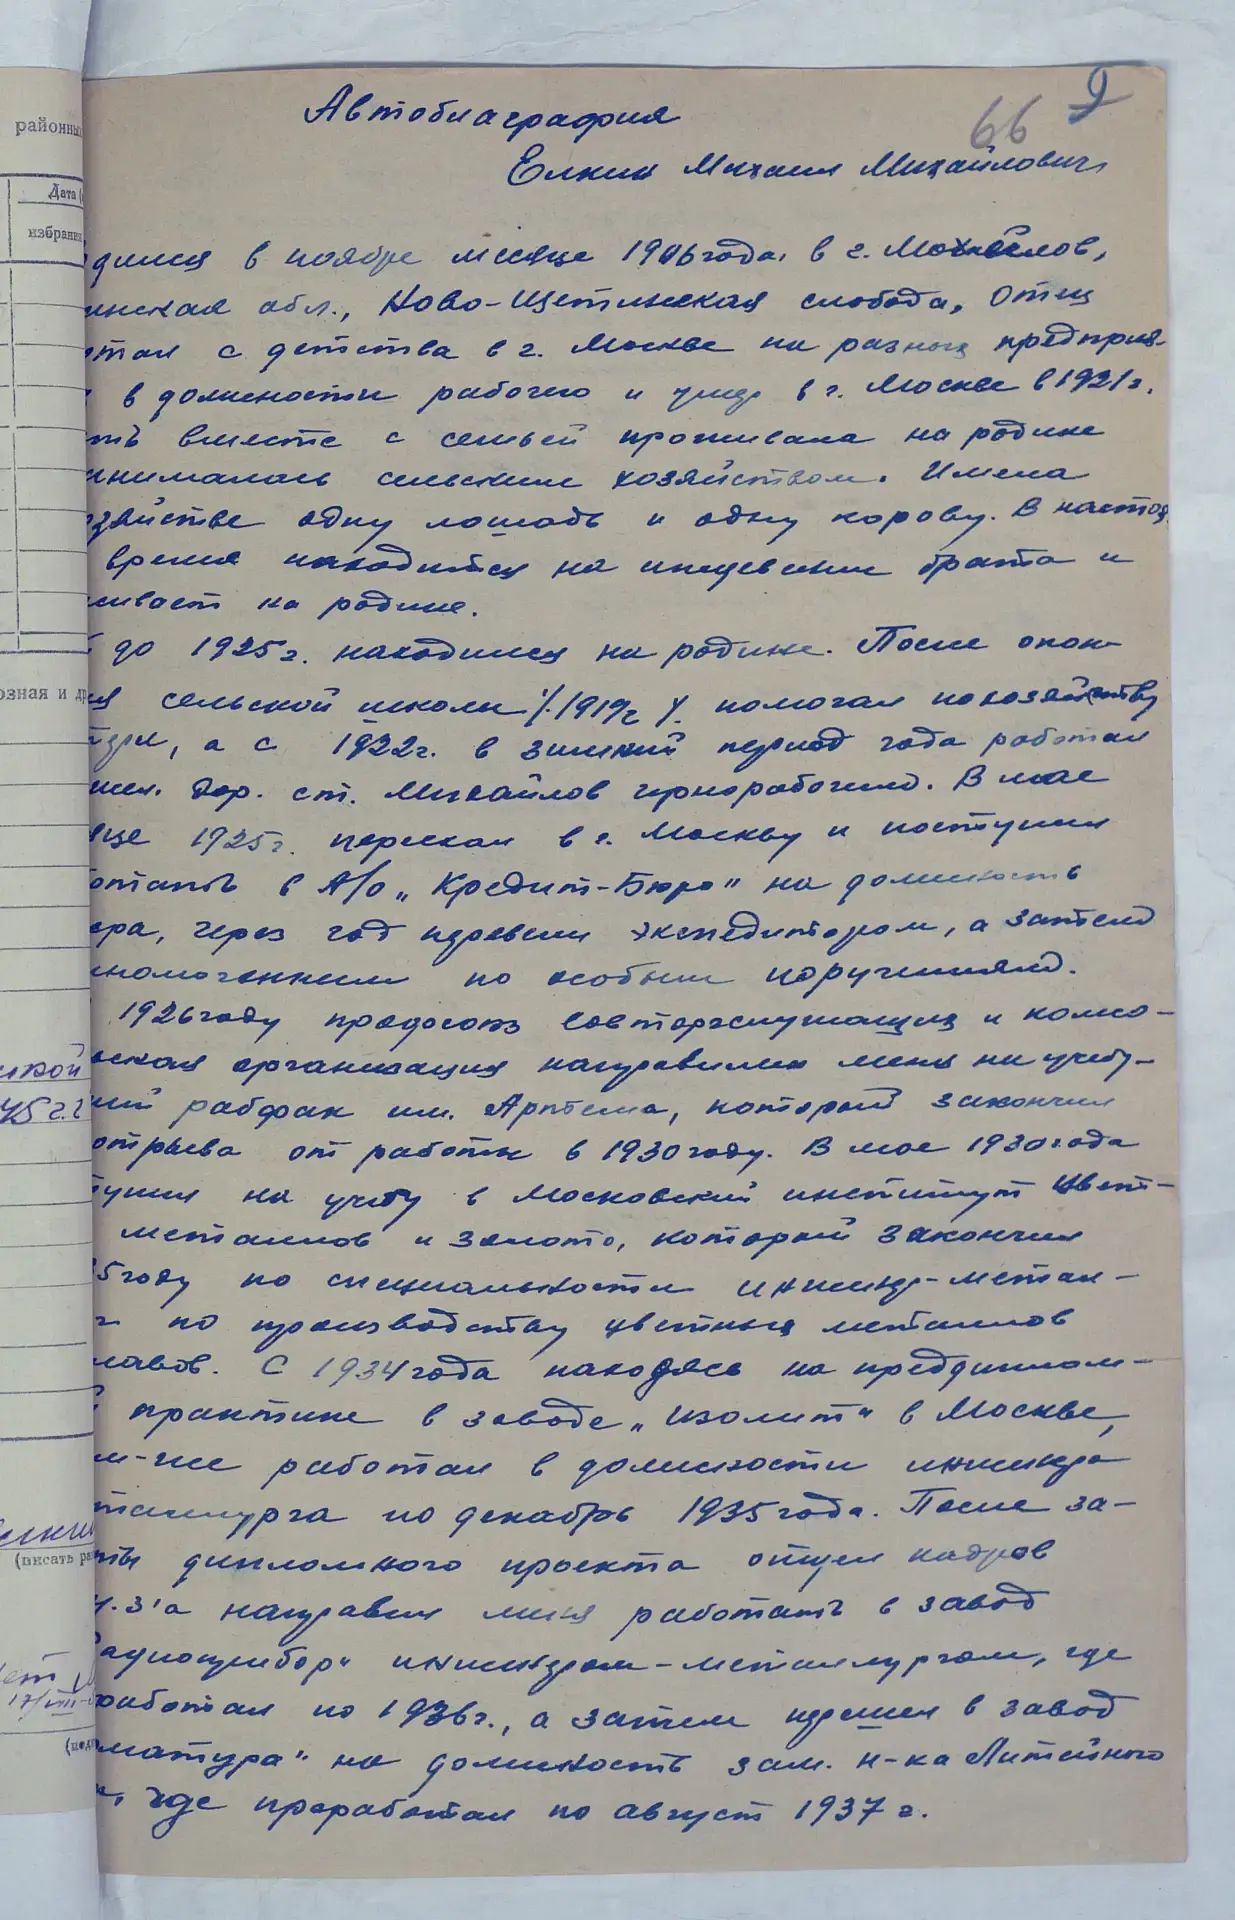 районных
Дата (
избрания
озная и др
ской
45 г.г
(писать ра
17/VIII-
(подп
66 9
Автобиаграфия
Елкин Михаил Михайлович
дился в ноябре месяце 1906 года. в г. Михайлов,
инская обл., Ново-Щетинская слобода. Отец
отал с детства в г. Москве на разных предприя-
в должности рабочего и умер в г. Москве в 1921 г.
ть вместе с семьей проживала на родине
анималась сельским хозяйством. Имела
озяйстве одну лошадь и одну корову. В настоя
время находится на иждевении брата и
живает на родине.
до 1925 г. находился на родине. После окон-
ия сельской школы /:1919г у. помогал по хозяйству
, а с 1922 г. в зимний период года работал
жел. дор. ст. Михайлов чернорабочим. В мае
яце 1925 г. переехал в г. Москву и поступил
ботать в А/о „Кредит-Бюро" на должность
ера, через год перевели экспедитором, а затем
лномоченным по особым поручениям.
1926 году профсоюз Совторгслужащих и комсо-
льская организация направили меня на учебу-
ний рабфак им. Артема, который закончил
отрыва от работы в 1930 году. В мае 1930 года
тупил на учебу в Московский институт Цвет-
металлов и золота, который закончил
35 году по специальности инженер-метал-
г по производству цветных металлов
лавов. С 1934 года находясь на преддиплом-
й практике в заводе „Изолит" в Москве,
м-же работал в должности инженера
таллурга по декабрь 1935 года. После за-
иты дипломного проекта отдел кадров
Ц.З'а направил меня работать в завод
Радиоприбор" инженером-металлургом, где
работал по 1936 г., а затем перешел в завод
матура" на должность зам. н-ка Литейного
, где проработал по август 1937 г.